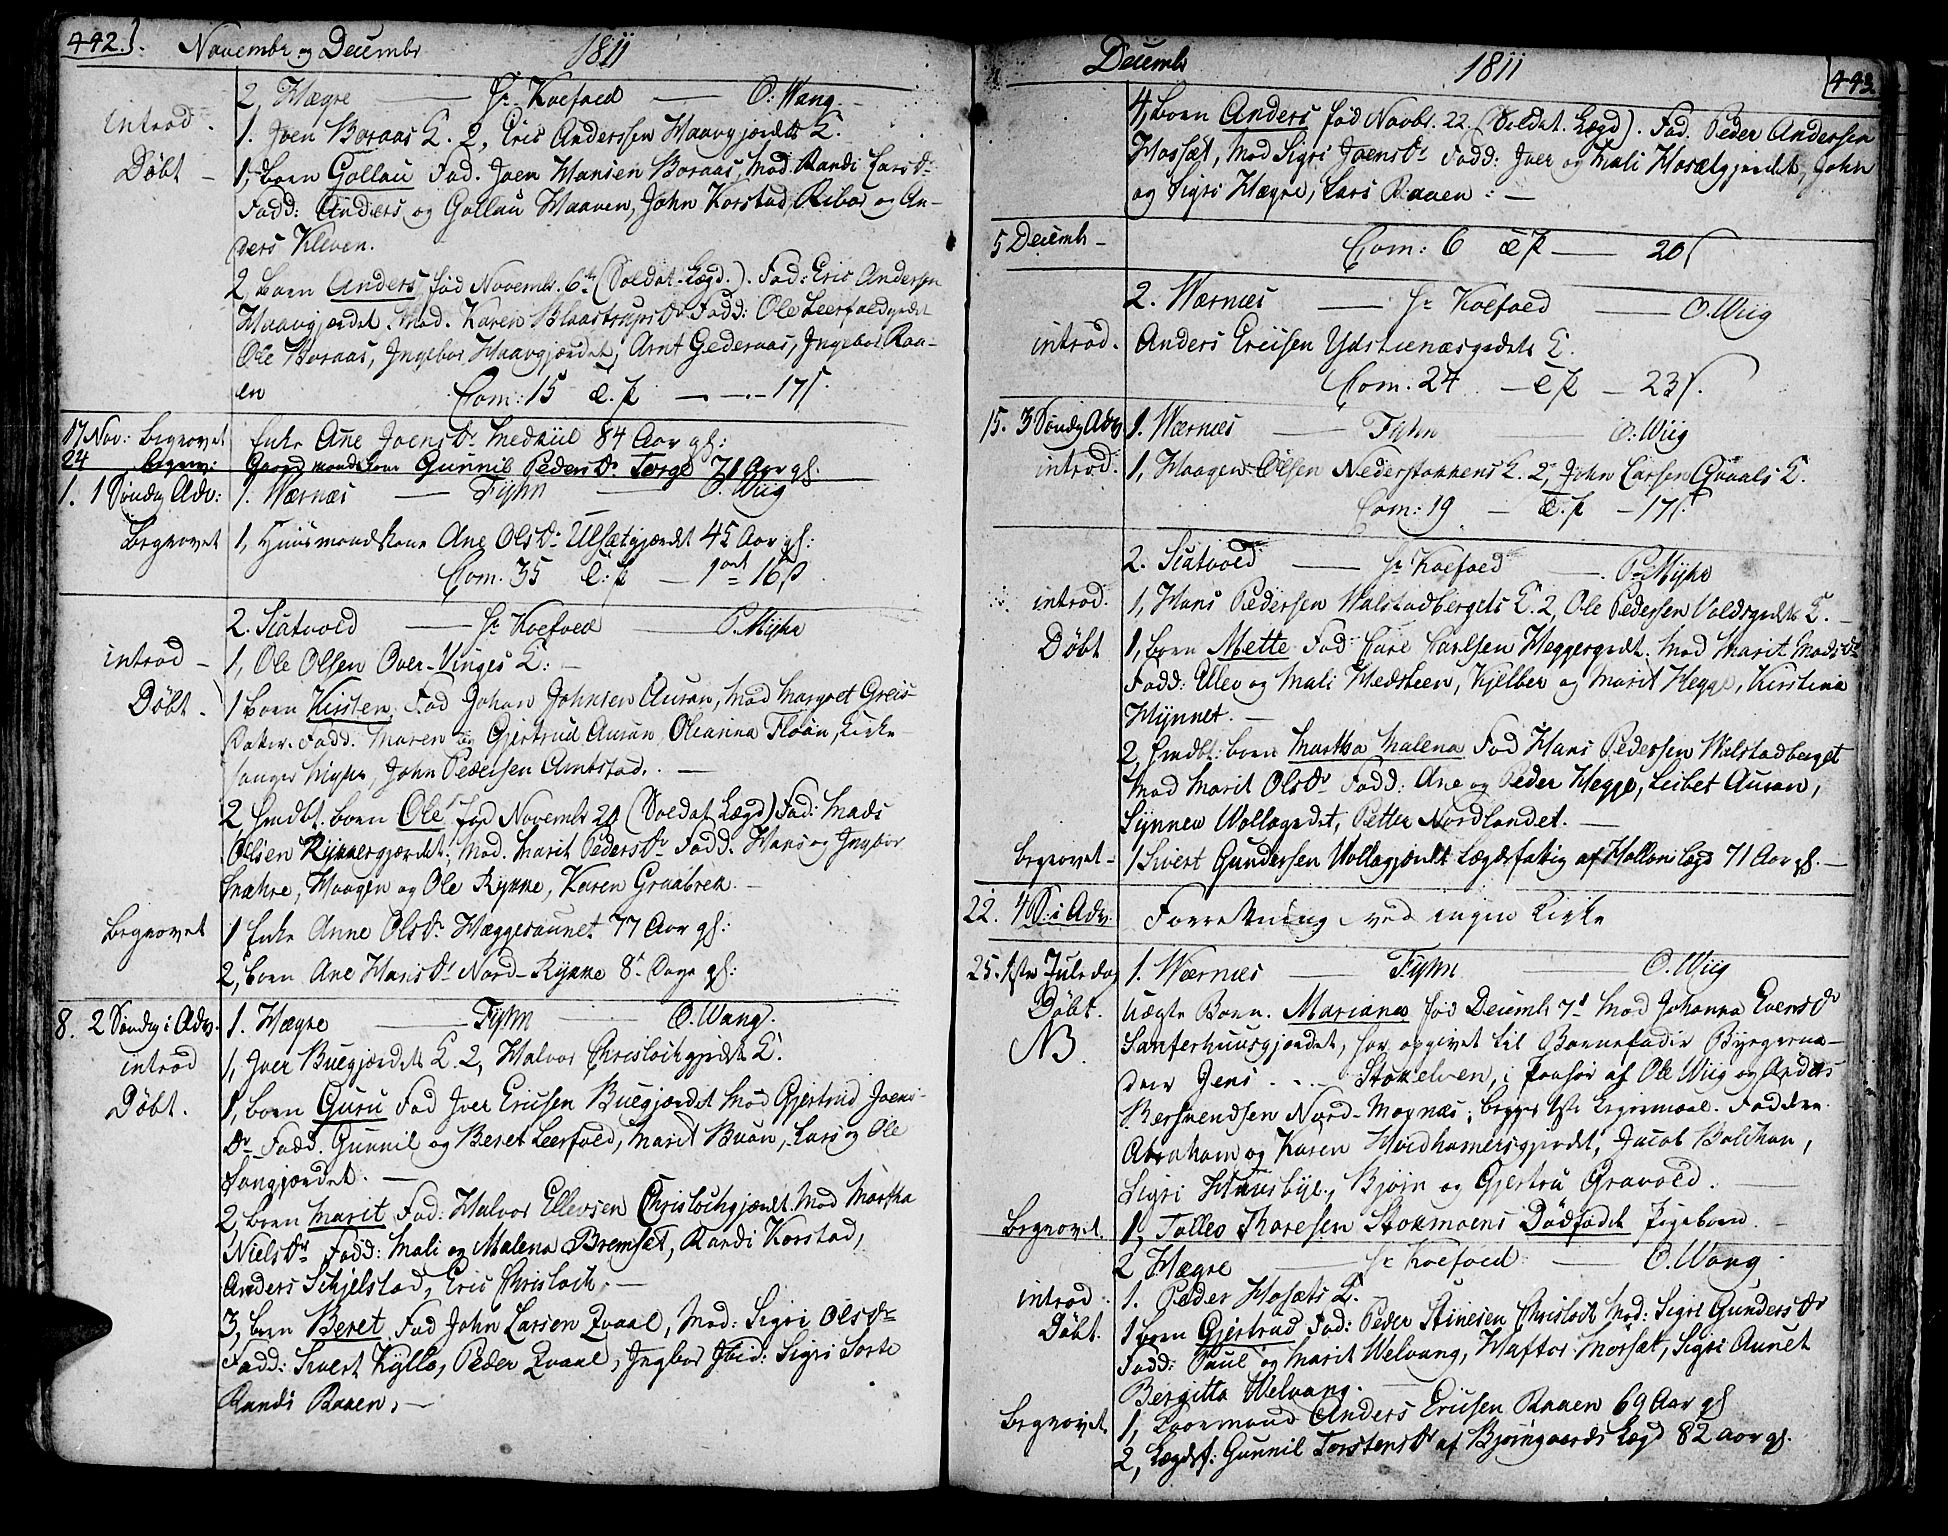 442. Novembr og Decembr 1811
2, Hægre — Hr Koefoed — O: Wang.
introd. 1. Joen Boraas K. 2, Eric Anderssen Haavgjærdets K.
Døbt - 1, Barn Gollau Fad. Joen Hansen Boraas, Mod Randi Larsdr
Fadd: Anders og Gollau Haaven, John Korstad, Ribor og An-
ders Kleven.
2, Barn Anders, fød Novembr. 6te (Soldat-Lægd.). Fad: Eric Andersen
Haavgjærdet. Mod. Karen Blaastrupsdr Fadd: Ole Leerfaldgrdet
Ole Boraas, Ingebor Haavgjærdet, Arnt Gederaas, Ingebor Raa-
en Com: 15 C. f. — 17 s.
17 Nov: Begrovet Enke Ane Joensdr. Medhiil 84 Aar gl:
24 begrov: Gaardmandskone Gunnil Pedersdr Torge 71 Aar gl.
1. 1 Søndag Adv: 1. Wærnæs — Fyhn — O. Wiig
Begrovet 1, Huusmandskone Ane Olsdr Ulsætgjærdet 45 Aar gl:
Com. 35 C: f. — 1 ort 16 s
2. Scatvold — Hr Koefoed — P. Myhr
introd - 1, Ole Olsen Over-Vinges K: -
Døbt. 1 Barn Kirsten Fad Johan Johnsen Auran, Mod Margret Greis-
Fadd. Maren og Gjertrud Auran, Oleanna Floan, Kirke-
sanger Myhr, John Pedersen Arntstad. —
2 hmdbt. barn Ole fød Novembr 20 (Soldat Lægd) Fad: Mads
Olsen Rykkergjærdet, Mod. Marit Pedersdr Fadd. Hans og Ingebor
Mæhre, Haagen og Ole Rykke, Karen Graabrek. —
Begrovet 1 Enke Anne Olsdr. Hæggesaunet 77 Aar gl:
2, Barn Ane Hansdr Nord-Rykke 8 Dage gl:
8. 2 Søndag i Adv. 1. Hægre — Fyhn — O. Wang.
introd 1, Iver Buegjærdet K. 2, Halvor Chrislochgjrdet K.
Døbt. 1, Barn Guru Fad Iver Ericsen Buegjærdet Mod Gjertrud Joens-
dr Fadd. Gunnil og Beret Leerfald, Marit Buan, Lars og Ole
Sangjærdet. —
2, Barn Marit Fad: Halvor Ellevsen Chrislochgjærdt Mod Martha
Nielsdr Fadd: Mali og Malena Bremset, Randi Korstad,
Anders Schjelstad, Eric Chrisloch. —
3, barn Beret Fad John Larsen Qvaal, Mod: Sigri Olsdr
Fadd: Sivert Kyllo, Peder Qvaal, Ingbor Ibid: Sigri Sorte
Randi Raaen, —
Decembr 1811 443
4, Barn Anders fød Novbr. 22 (Soldat. Lægd). Fad. Peder Andersen
Hosæt, Mod Sigri Joensdr Fadd: Iver og Mali Hosætgjerdet, John
og Sigri Hægre, Lars Raaen: —
5 Decembr - Com: 6 C f. — 20 s
2. Wærnæs — Hr Koefoed — O. Wiig
introd. Anders Ericsen Ydstienæsgrdets K.
Com. 24 — C f. — 23 s.
15. 3 Søndag Adv 1. Wærnæs — Fyhn — O: Wiig
introd. 1, Haagen Olsen Nederstokkens K. 2, John Larsen Qvaals K.
Com: 19 — C. f. — 17 s.
2. Scatvold — Hr Koefoed — P. Myhr
introd. 1, Hans Pedersen Walstadbergets K. 2, Ole Pedersen Voldsgrdets K. -
Døbt 1, Barn Mette Fad: Carl Carlsen Heggergrdt. Mod Marit Madsdr
Fadd: Ellev og Mali Hedsteen, Kjelber og Marit Hegge, Kirstina
Hynnet. —
2, hmdbt. barn Martha Malena Fad Hans Pedersen Walstadberget
Mod Marit Olsdr Fadd: Ane og Peder Hegge, Lisbet Auran,
Synnev Wollagrdet, Petter Nordlandet. —
begrovet - 1 Sivert Gundersen Vollagjærdt Lægdsfattig af Hollan Lægd 71 Aar gl. —
22. 4 S: i Adv. Forretning ved ingen Kirke
25. 1ste Juledag 1. Wærnæs — Fyhn — O. Wiig
Døbt. Uægte Barn. Mariana fød Decembr 7de Mod Johanna Evensdr
NB Sanferhuusgjærdet, har opgivet til Barnefader Bygge
Jens . . . Stokelven, i Paahør af Ole Wiig og Anders
Nord-Moynæs; begges 1ste Leiermaal. Faddere
Abraham og Karen Hvidhamersgjerdet, Jacob Balchan,
Sigri Huusbye, Bjørn og Gjertru Gravold. —
Begrovet. 1, Tolles Thoresen Stokmoens Dødfødet Pigebarn. —
2 Hægre — Hr Koefoed — O. Wang
introd. 1. Peder Hosæts K.
Døbt. 1 barn Gjertrud Fad: Peder Stinesen Chrisloch Mod: Sigri Gundersdr
Fadd: Paul og Marit Welvang, Haftor Morsæt, Sigri Aunet
Bergitta Welvang. —
Begrovet 1, Kaarmand Anders Ericsen Raaen 69 Aar gl
2, Lægdsf: Gunnil Torstensdr af Bjørngaards Lægd 82 aar gl.